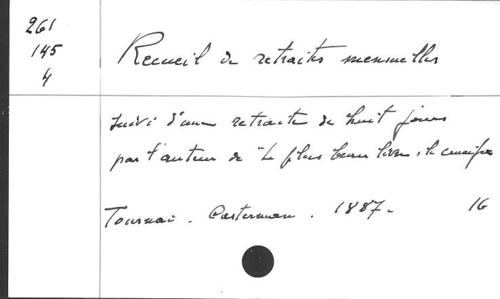 261
145
4
Recueil de retraites mensuelles
suivi d'une retraite de huit jours
par l'auteur de "Le plus beau livre, le crucifix
Tournai. Casterman. 1887. 16